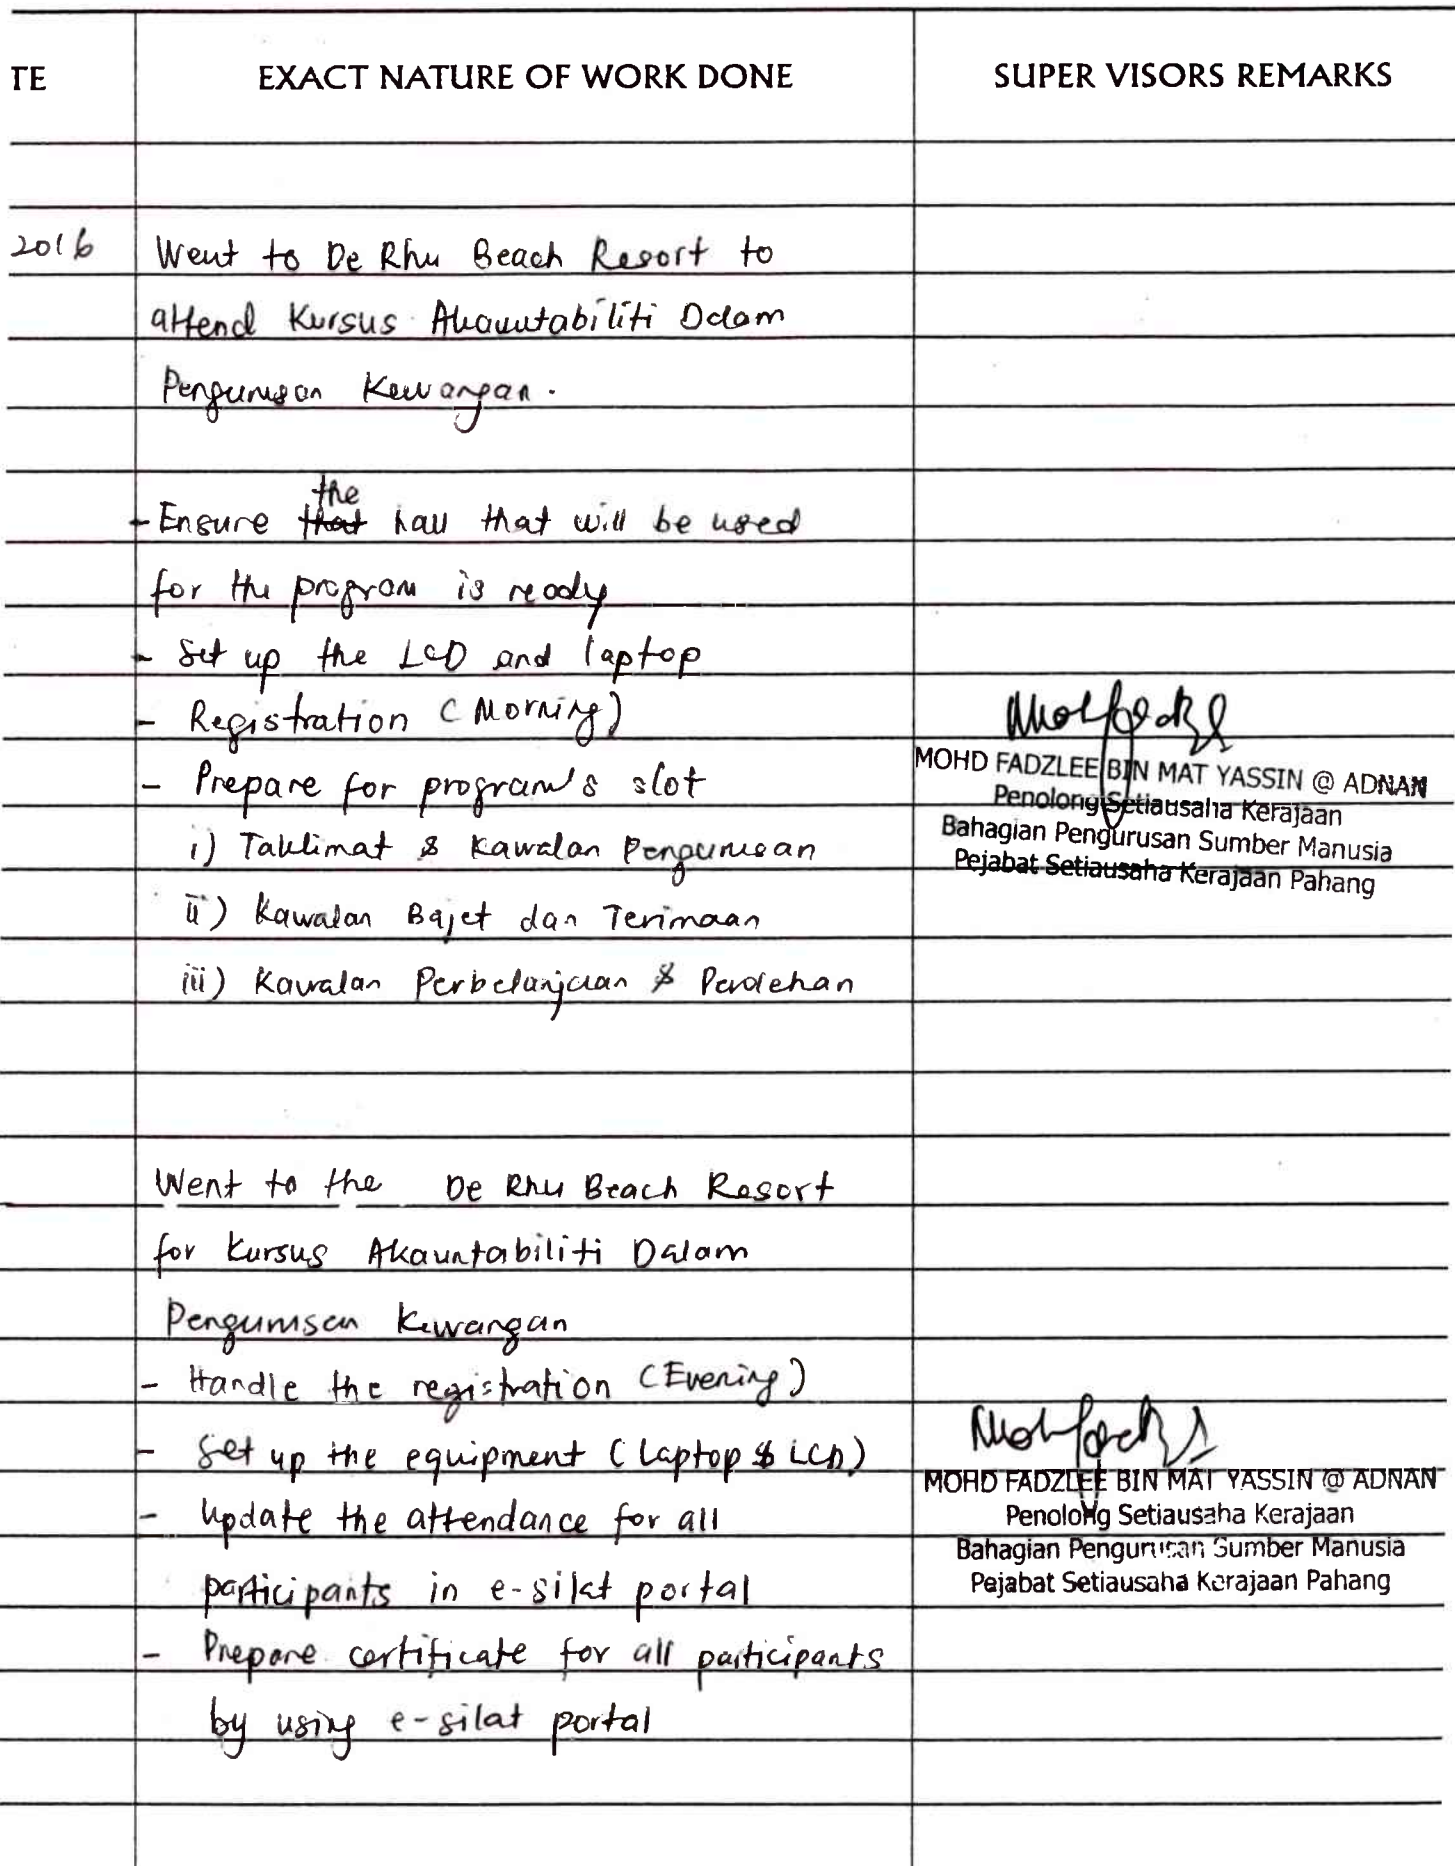 TE EXACT NATURE OF WORK DONE SUPER VISORS REMARKS
2016 Went to De Rhu Beach Resort to
attend Kursus Akauntabiliti Dalam
Pengurusan Kewangan.
the
- Ensure that hall that will be used
for the program is ready
- Set up the LCD and laptop
- Registration (Morning)
- Prepare for program's slot
i) Taklimat & Kawalan Pengurusan
ii) Kawalan Bajet dan Terimaan
iii) Kawalan Perbelanjaan & Perolehan
MOHD FADZLEE BIN MAT YASSIN @ ADNAN
Penolong Setiausaha Kerajaan
Bahagian Pengurusan Sumber Manusia
Pejabat Setiausaha Kerajaan Pahang
Went to the De Rhu Beach Resort
for Kursus Akauntabiliti Dalam
Pengurusan Kewangan
- Handle the registration (Evening)
- Set up the equipment (Laptop & LCD)
- Update the attendance for all
participants in e-silat portal
- Prepare certificate for all participants
by using e-silat portal
MOHD FADZLEE BIN MAT YASSIN @ ADNAN
Penolong Setiausaha Kerajaan
Bahagian Pengurusan Sumber Manusia
Pejabat Setiausaha Kerajaan Pahang